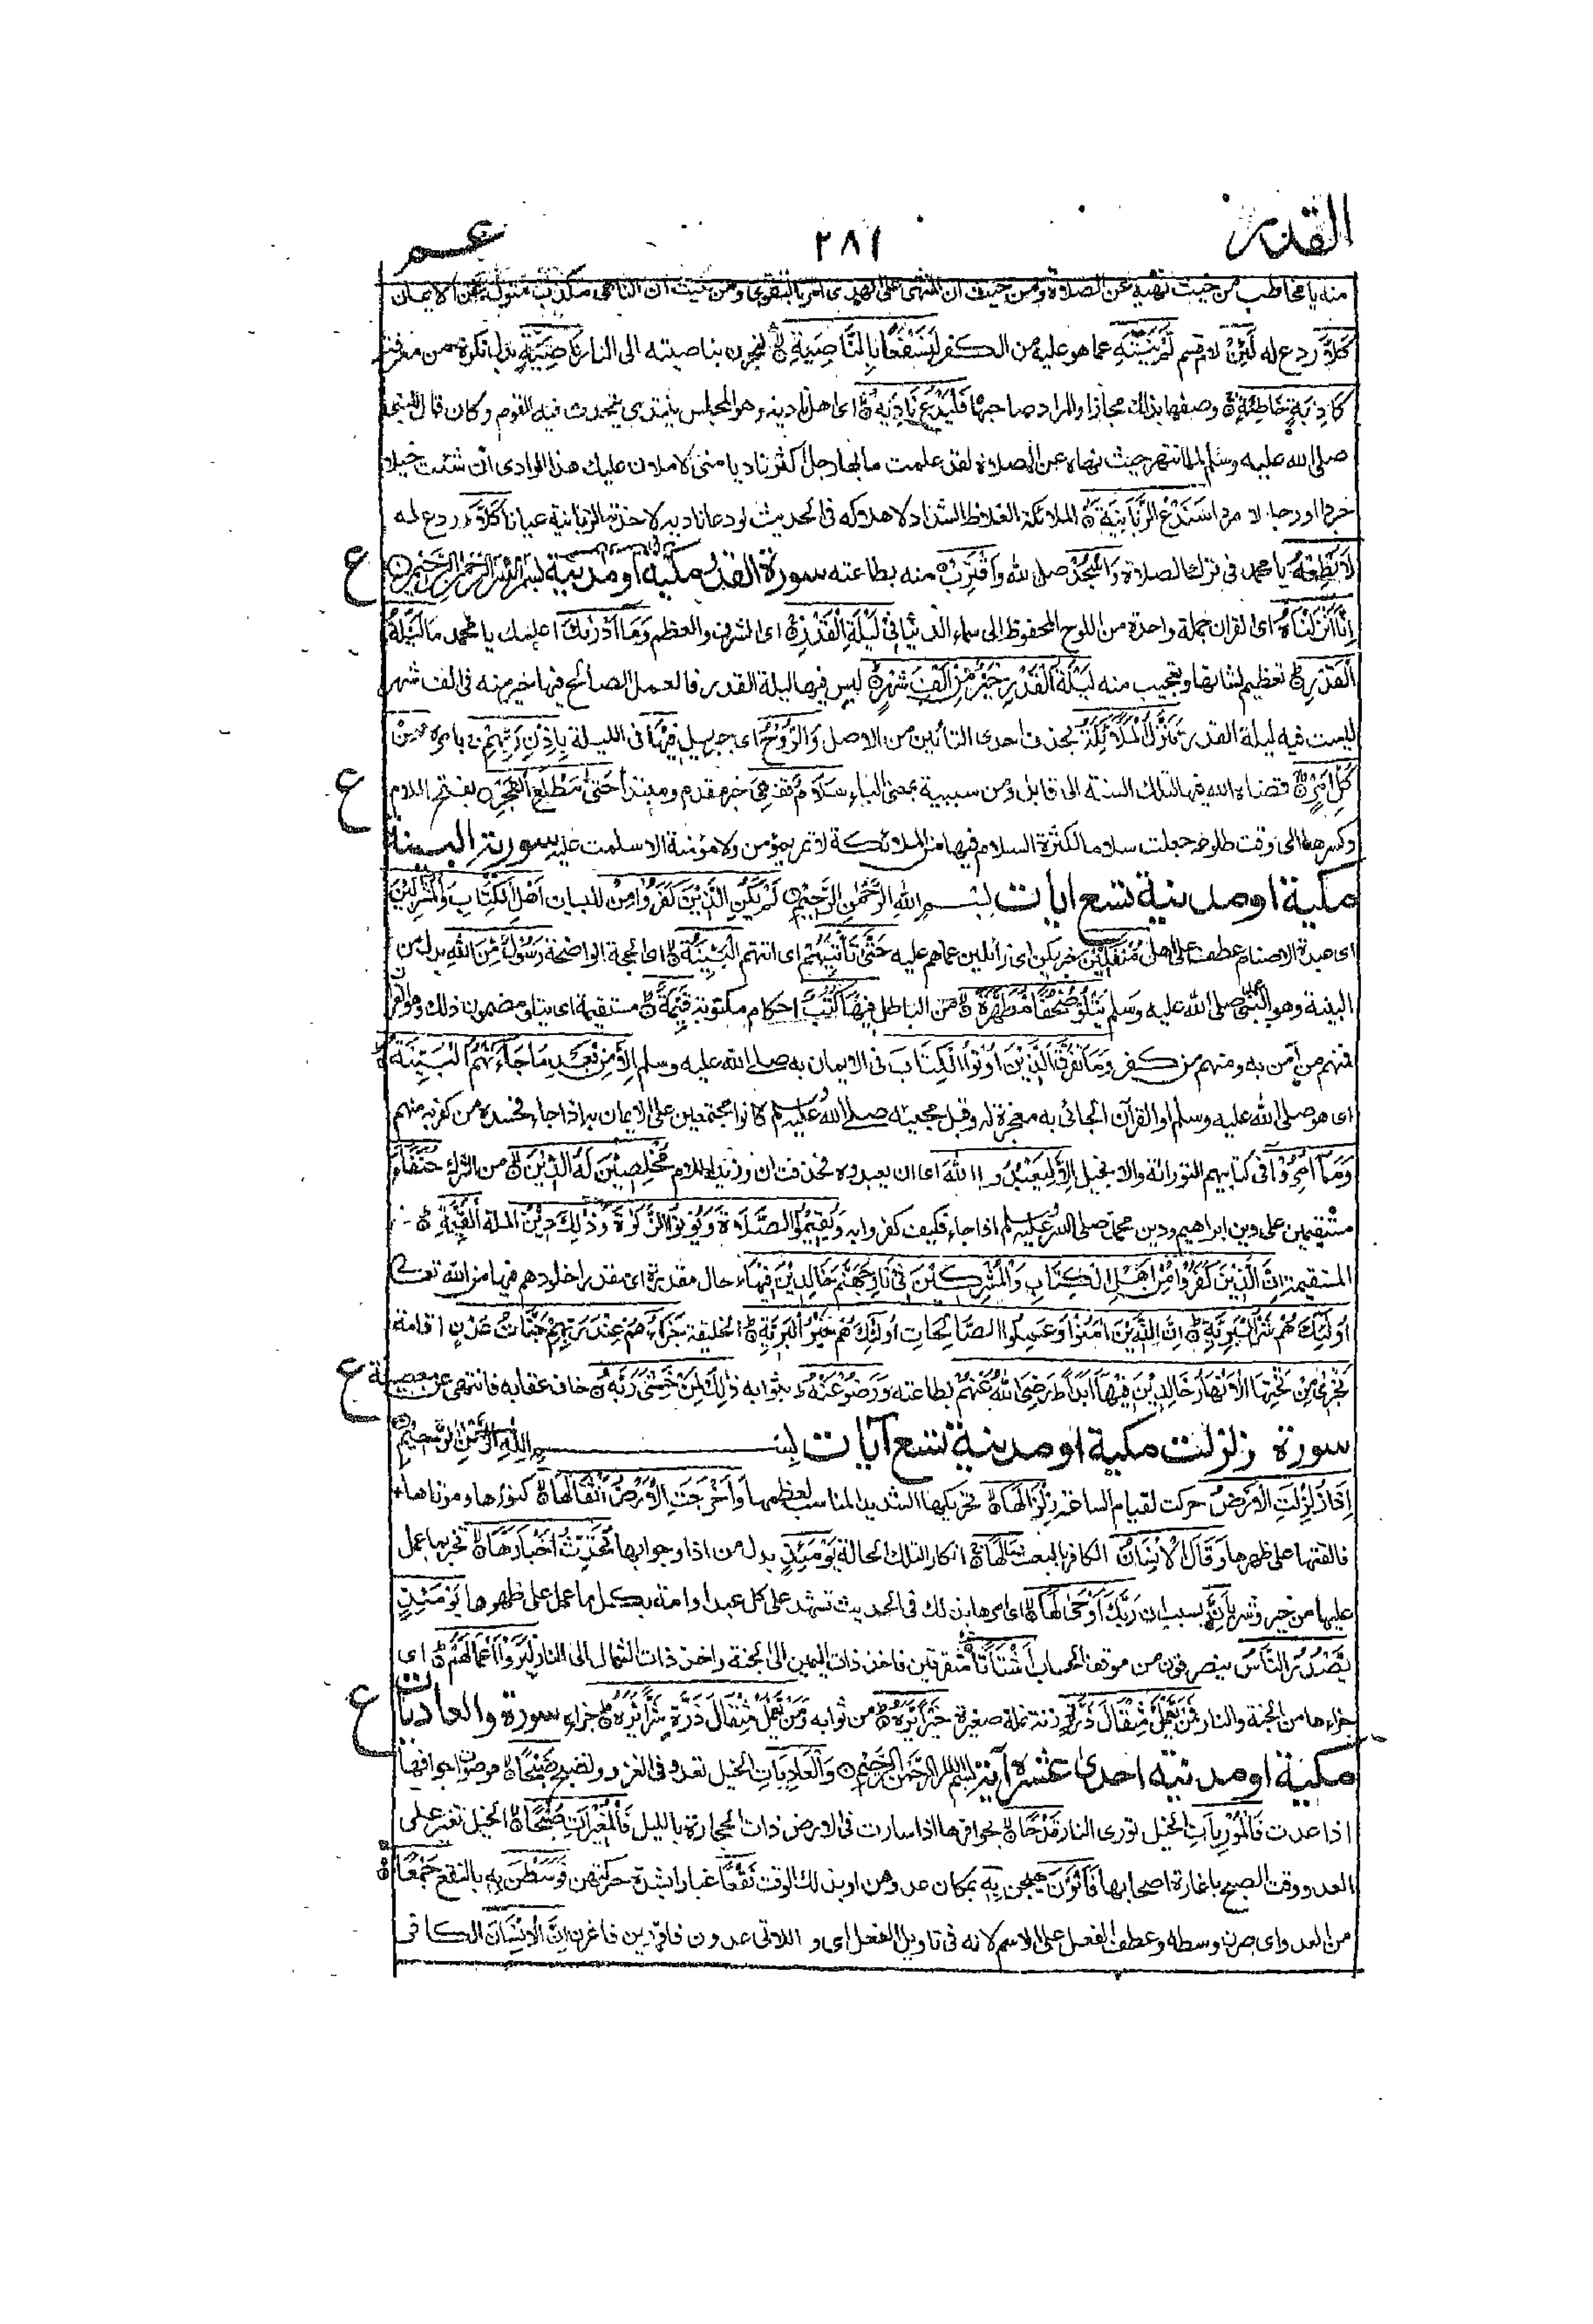 القدر ٢٨١ عم
منه يا مخاطب من حيث نهيه عن الصلاة ومن حيث ان المنهى على الهدى امر بالتقوى ومن حيث ان الناهى مكذب متول عن الايمان
كَلَّا ردع له لَئِنْ لام قسم لَّمْ يَنْتَهِ عما هو عليه من الكفر لَنَسْفَعًا بِالنَّاصِيَةِ لنجرن بناصيته الى النار نَاصِيَةٍ بدل نكرة من معرفة
كَاذِبَةٍ خَاطِئَةٍ وصفها بذلك مجازا والمراد صاحبها فَلْيَدْعُ نَادِيَهُ اى اهل ناديه وهو المجلس ينتدى يتحدث فيه القوم وكان قال للنبى
صلى الله عليه وسلم لما انتهره حيث نهاه عن الصلاة لقد علمت ما بها رجل اكثر ناديا منى لاملان عليك هذا الوادى ان شئت خيلا
جردا ورجالا مردا سَنَدْعُ الزَّبَانِيَةَ الملائكة الغلاظ الشداد لاهلاكه فى الحديث لو دعا ناديه لاخذته الزبانية عيانا كَلَّا ردع له
لَا تُطِعْهُ يا محمد فى ترك الصلاة وَاسْجُدْ صل لله وَاقْتَرِبْ منه بطاعته سورة القدر مكية او مدنية بسم الله الرحمن الرحيم ع
اِنَّا اَنْزَلْنَاهُ اى القران جملة واحدة من اللوح المحفوظ الى سماء الدنيا فِىْ لَيْلَةِ الْقَدْرِ اى الشرف والعظم وَمَا اَدْرٰىكَ اعلمك يا محمد مَا لَيْلَةُ
الْقَدْرِ تعظيم لشانها وتعجيب منه لَيْلَةُ الْقَدْرِ خَيْرٌ مِّنْ اَلْفِ شَهْرٍ ليس فيها ليلة القدر فالعمل الصالح فيها خير منه فى الف شهر
ليست فيه ليلة القدر تَنَزَّلُ الْمَلَائِكَةُ بحذف احدى التائين من الاصل وَالرُّوْحُ اى جبريل فِيْهَا فى الليلة بِاِذْنِ رَبِّهِمْ بامره مِنْ
كُلِّ اَمْرٍ قضاه الله فيها لتلك السنة الى قابل ومن سببية بمعنى الباء سَلَامٌ هِىَ خبر مقدم ومبتدأ حَتّٰى مَطْلَعِ الْفَجْرِ بفتح اللام ع
وكسرها الى وقت طلوعه جعلت سلاما لكثرة السلام فيها من الملائكة لا تمر بمؤمن ولا مؤمنة الا سلمت عليه سورة البينة
مكية او مدنية تسع ايات بسم الله الرحمن الرحيم لَمْ يَكُنِ الَّذِيْنَ كَفَرُوْا مِنْ للبيان اَهْلِ الْكِتَابِ وَالْمُشْرِكِيْنَ
اى عبدة الاصنام عطف على اهل مُنْفَكِّيْنَ خبر يكن اى زائلين عما هم عليه حَتّٰى تَأْتِيَهُمْ اى اتتهم الْبَيِّنَةُ اى الحجة الواضحة رَسُوْلٌ مِّنَ اللّٰهِ بدل من
البينة وهو النبى صلى الله عليه وسلم يَتْلُوْ صُحُفًا مُّطَهَّرَةً من الباطل فِيْهَا كُتُبٌ احكام مكتوبة قَيِّمَةٌ مستقيمة اى يتلو مضمون ذلك وهو القران
فمنهم من آمن به ومنهم من كفر وَمَا تَفَرَّقَ الَّذِيْنَ اُوْتُوا الْكِتَابَ فى الايمان به صلى الله عليه وسلم اِلَّا مِنْ بَعْدِ مَا جَاءَتْهُمُ الْبَيِّنَةُ
اى هو صلى الله عليه وسلم او القرآن الجائى به معجزة له وقبل مجيئه صلى الله عليه وسلم كانوا مجتمعين على الايمان به اذا جاء فحسده من كفر به منهم
وَمَا اُمِرُوْا فى كتابيهم التوراة والانجيل اِلَّا لِيَعْبُدُوا اللّٰهَ اى ان يعبدوه فحذفت ان وزيدت اللام مُخْلِصِيْنَ لَهُ الدِّيْنَ من الشرك حُنَفَاءَ
مستقيمين على دين ابراهيم ودين محمد صلى الله عليه وسلم اذا جاء فكيف كفروا به وَيُقِيْمُوا الصَّلَاةَ وَيُؤْتُوا الزَّكٰوةَ وَذٰلِكَ دِيْنُ الملة الْقَيِّمَةِ
المستقيمة اِنَّ الَّذِيْنَ كَفَرُوْا مِنْ اَهْلِ الْكِتَابِ وَالْمُشْرِكِيْنَ فِىْ نَارِ جَهَنَّمَ خَالِدِيْنَ فِيْهَا حال مقدرة اى مقدرا خلودهم فيها من الله تعالى
اُولٰئِكَ هُمْ شَرُّ الْبَرِيَّةِ اِنَّ الَّذِيْنَ اٰمَنُوْا وَعَمِلُوا الصَّالِحَاتِ اُولٰئِكَ هُمْ خَيْرُ الْبَرِيَّةِ الخليقة جَزَاؤُهُمْ عِنْدَ رَبِّهِمْ جَنَّاتُ عَدْنٍ اقامة
تَجْرِىْ مِنْ تَحْتِهَا الْاَنْهَارُ خَالِدِيْنَ فِيْهَا اَبَدًا رَضِىَ اللّٰهُ عَنْهُمْ بطاعته وَرَضُوْا عَنْهُ بثوابه ذٰلِكَ لِمَنْ خَشِىَ رَبَّهُ خاف عقابه فانتهى عن معصيته ع
سورة زلزلت مكية او مدنية تسع آيات بسم الله الرحمن الرحيم
اِذَا زُلْزِلَتِ الْاَرْضُ حركت لقيام الساعة زِلْزَالَهَا تحريكها الشديد المناسب لعظمها وَاَخْرَجَتِ الْاَرْضُ اَثْقَالَهَا كنوزها وموتاها
فالقتها على ظهرها وَقَالَ الْاِنْسَانُ الكافر بالبعث مَا لَهَا انكارا لتلك الحالة يَوْمَئِذٍ بدل من اذا وجوابها تُحَدِّثُ اَخْبَارَهَا تخبر بما عمل
عليها من خير وشر بِاَنَّ بسبب ان رَبَّكَ اَوْحٰى لَهَا اى امرها بذلك فى الحديث تشهد على كل عبد او امة بكل ما عمل على ظهرها يَوْمَئِذٍ
يَّصْدُرُ النَّاسُ ينصرفون من موقف الحساب اَشْتَاتًا متفرقين فاخذ ذات اليمين الى الجنة واخذ ذات الشمال الى النار لِّيُرَوْا اَعْمَالَهُمْ اى
جزاءها من الجنة والنار فَمَنْ يَّعْمَلْ مِثْقَالَ ذَرَّةٍ زنة نملة صغيرة خَيْرًا يَّرَهُ من ثوابه وَمَنْ يَّعْمَلْ مِثْقَالَ ذَرَّةٍ شَرًّا يَّرَهُ جزاءه سورة والعاديات ع
مكية او مدنية احدى عشرة آية بسم الله الرحمن الرحيم وَالْعَادِيَاتِ الخيل تعدو فى الغزو وتضبح ضَبْحًا هو صوت اجوافها
اذا عدت فَالْمُوْرِيَاتِ الخيل تورى النار قَدْحًا بحوافرها اذا سارت فى الارض ذات الحجارة بالليل فَالْمُغِيْرَاتِ صُبْحًا الخيل تغير على
العدو وقت الصبح باغارة اصحابها فَاَثَرْنَ هيجن بِهٖ بمكان عدوهن او بذلك الوقت نَقْعًا غبارا بشدة حركتهن فَوَسَطْنَ بِهٖ بالنقع جَمْعًا
من العدو اى صرن وسطه وعطف الفعل على الاسم لانه فى تاويل الفعل اى واللاتى عدون فاورين فاغرن اِنَّ الْاِنْسَانَ الكافر